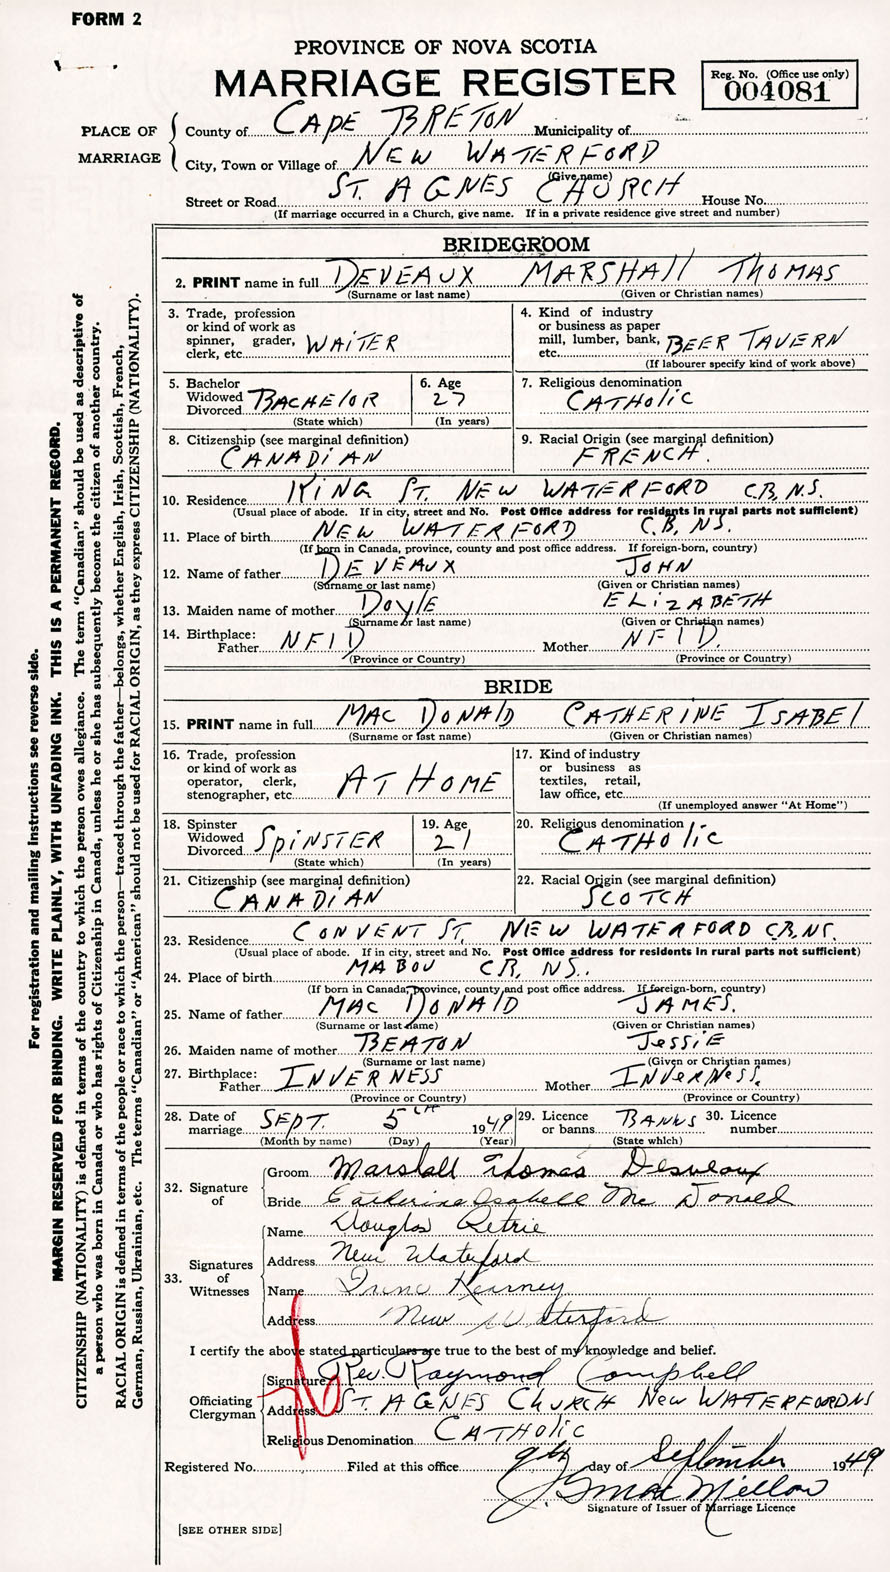 FORM 2
PROVINCE OF NOVA SCOTIA
MARRIAGE REGISTER
Reg. No. (Office use only)
004081
PLACE OF MARRIAGE
County of CAPE BRETON Municipality of
City, Town or Village of NEW WATERFORD
(Give name)
Street or Road ST. AGNES CHURCH House No.
(If marriage occurred in a Church, give name. If in a private residence give street and number)
BRIDEGROOM
2. PRINT name in full DEVEAUX MARSHAll THOMAS
(Surname or last name) (Given or Christian names)
3. Trade, profession or kind of work as spinner, grader, clerk, etc. WAiTER
4. Kind of industry or business as paper mill, lumber, bank, etc. BEER TAVERN
(If labourer specify kind of work above)
5. Bachelor Widowed Divorced BACHElOR
(State which)
6. Age 27
(In years)
7. Religious denomination CATHOliC
8. Citizenship (see marginal definition) CANADiAN
9. Racial Origin (see marginal definition) FRENCH.
10. Residence KiNG ST. NEW WATERFORD C.B, N.S.
(Usual place of abode. If in city, street and No. Post Office address for residents in rural parts not sufficient)
11. Place of birth NEW WATERFORD C.B, NS.
(If born in Canada, province, county and post office address. If foreign-born, country)
12. Name of father DEVEAUX JOHN
(Surname or last name) (Given or Christian names)
13. Maiden name of mother DOylE ELiZABETH
(Surname or last name) (Given or Christian names)
14. Birthplace: Father NFlD Mother NFlD.
(Province or Country) (Province or Country)
BRIDE
15. PRINT name in full MAC DONAlD CATHERiNE ISABEl
(Surname or last name) (Given or Christian names)
16. Trade, profession or kind of work as operator, clerk, stenographer, etc. AT HOME
17. Kind of industry or business as textiles, retail, law office, etc.
(If unemployed answer "At Home")
18. Spinster Widowed Divorced SPiNSTER
(State which)
19. Age 21
(In years)
20. Religious denomination CATHOliC
21. Citizenship (see marginal definition) CANADiAN
22. Racial Origin (see marginal definition) SCOTCH
23. Residence CONVENT ST, NEW WATERFORD C.B, NS.
(Usual place of abode. If in city, street and No. Post Office address for residents in rural parts not sufficient)
24. Place of birth MABOU C.B, NS.
(If born in Canada, province, county and post office address. If foreign-born, country)
25. Name of father MAC DONAlD JAMES.
(Surname or last name) (Given or Christian names)
26. Maiden name of mother BEATON JeSSiE
(Surname or last name) (Given or Christian names)
27. Birthplace: Father INVERNESS Mother INVeRNeSS.
(Province or Country) (Province or Country)
28. Date of marriage SEPT. 5th 1949
(Month by name) (Day) (Year)
29. Licence or banns BANNS
(State which)
30. Licence number
32. Signature of
Groom Marshall Thomas Desveaux
Bride Catherine Isabell Mc Donald
33. Signatures of Witnesses
Name Douglas Petrie
Address New Waterford
Name Irene Kearney
Address New Waterford
I certify the above stated particulars are true to the best of my knowledge and belief.
Officiating Clergyman
Signature Rev. Raymond Campbell
Address ST. AGNES CHURCH NeW WATERFORD NS
Religious Denomination CATHOliC
Registered No. Filed at this office 9th day of September 1949
Signature of Issuer of Marriage Licence
[SEE OTHER SIDE]
For registration and mailing instructions see reverse side.
MARGIN RESERVED FOR BINDING. WRITE PLAINLY, WITH UNFADING INK. THIS IS A PERMANENT RECORD.
CITIZENSHIP (NATIONALITY) is defined in terms of the country to which the person owes allegiance. The term "Canadian" should be used as descriptive of
a person who was born in Canada or who has rights of Citizenship in Canada, unless he or she has subsequently become the citizen of another country.
RACIAL ORIGIN is defined in terms of the people or race to which the person—traced through the father—belongs, whether English, Irish, Scottish, French,
German, Russian, Ukrainian, etc. The terms "Canadian" or "American" should not be used for RACIAL ORIGIN, as they express CITIZENSHIP (NATIONALITY).